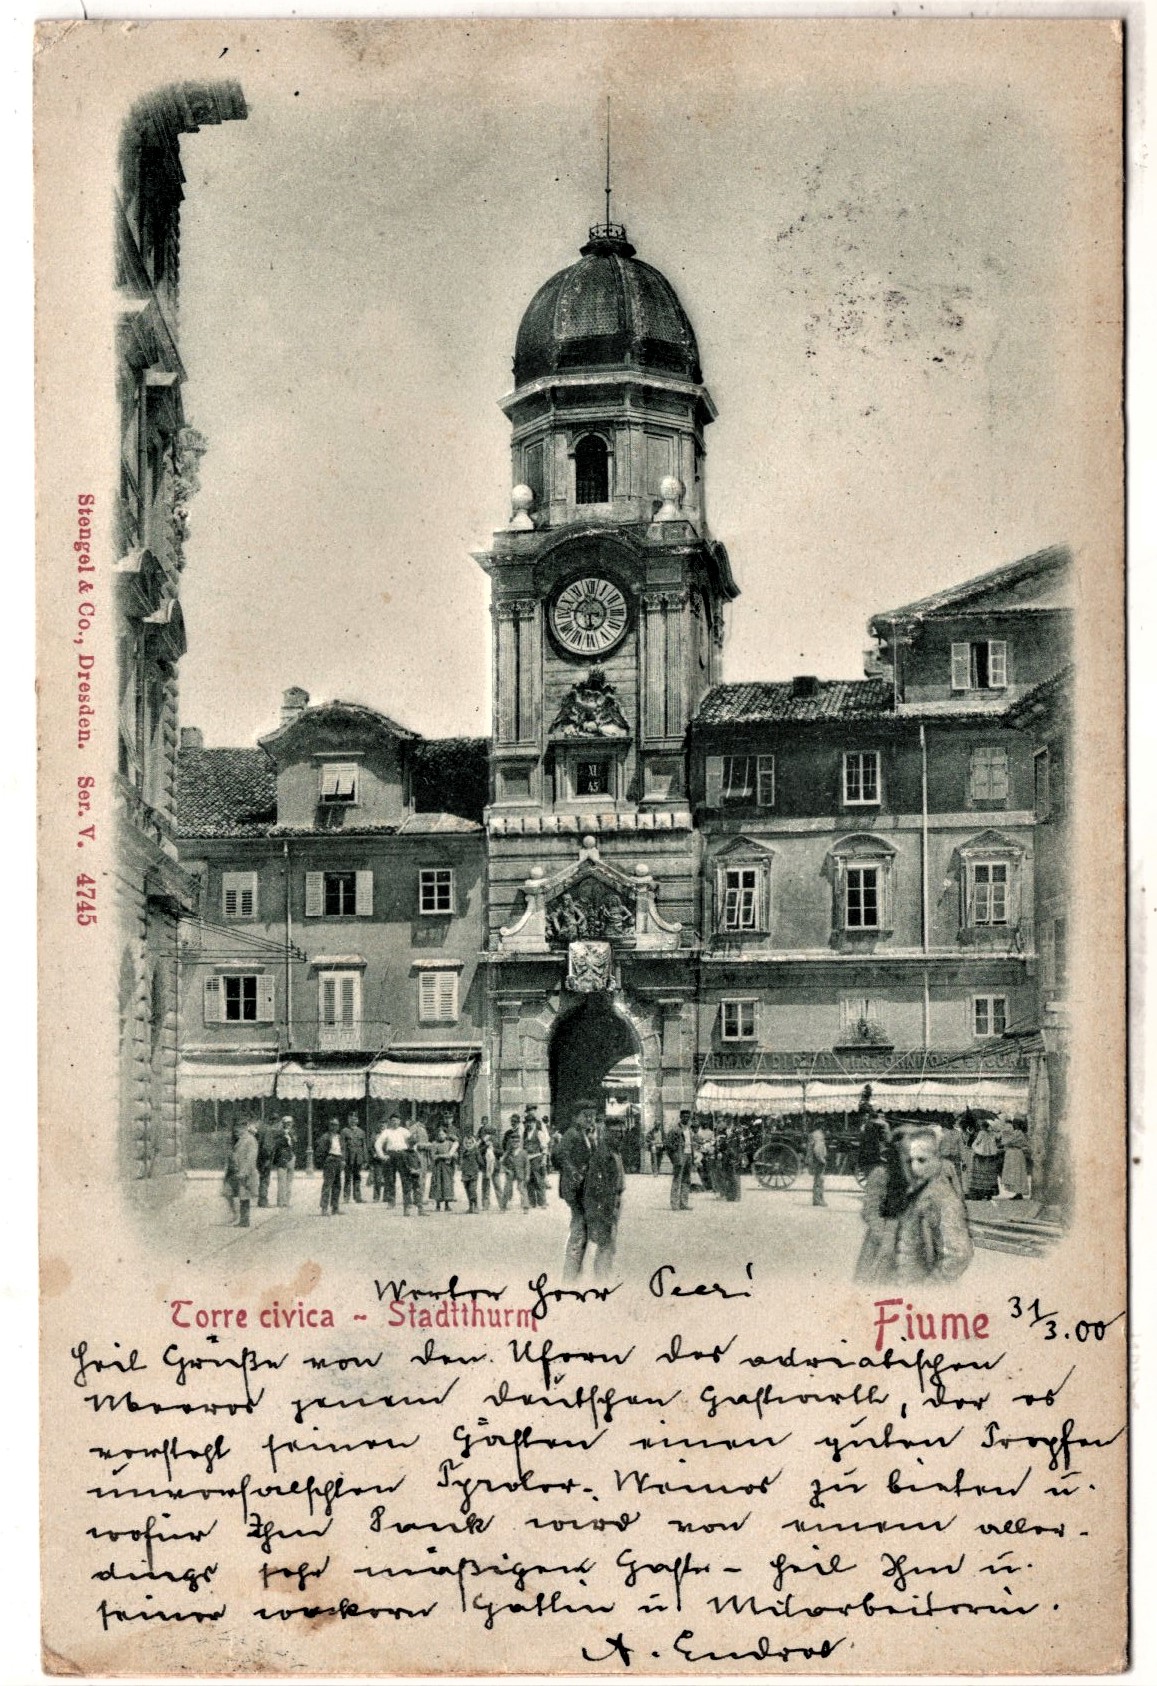 Stengel & Co., Dresden. Ser. V. 4745
XI
45
Werter Herr Peer!
Torre civica ~ Stadtthurm
Fiume 31/3.00
Heil Grüße von den Ufern des adriatischen
Meeres jenem deutschen Gastwirth, der es
versteht seinen Gästen einen guten Tropfen
unverfälschten Tyroler-Weines zu bieten u.
wofür Ihm Dank wird von einem aller-
dings sehr mäßigen Gaste - Heil Ihm u.
seiner wackern Gattin u Mitarbeiterin.
A. Endres